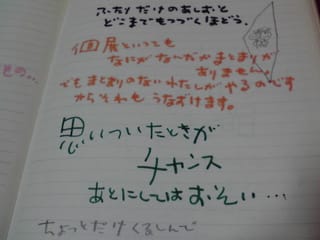 ふたりだけのあしむと
どこまでもつづくほどう。
色の…
個展といっても
なにがなんだがまとまりが
ありません。
でもまとまりのないわたしがやるのです
からそれもうなずけます。
思いついたときが
チャンス
あとにしてはおそい…
ちょっとだけくるしんで